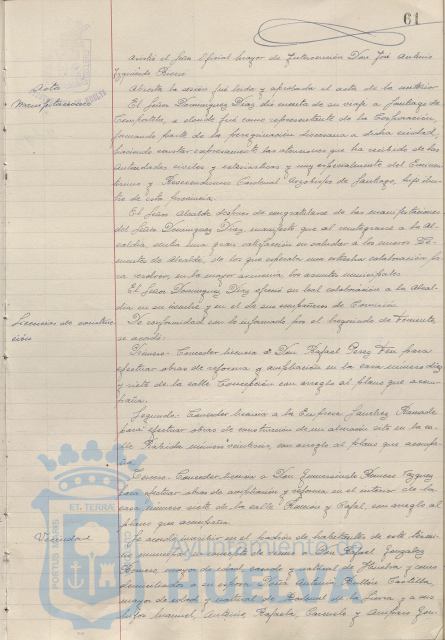 61
Asiste el Señor Oficial Mayor de Intervención Don José Antonio
Izquierdo
Acta
manifestaciones
Abierta la sesión fué leída y aprobada el acta de la anterior
El Señor Dominguez Diaz dió cuenta de su viaje a Santiago de
Compostela, a donde fué como representante de la Corporación,
formando parte de la peregrinación diocesana a dicha ciudad,
haciendo constar expresamente las atenciones que ha recibido de las
Autoridades civiles y eclesiásticas y muy especialmente del Eminen
tísimo y Reverendísimo Cardenal Arzobispo de Santiago, hijo ilus
tre de esta provincia.
El Señor Alcalde despues de congratularse de las manifestaciones
del Señor Dominguez Diaz, manifestó que al reintegrarse a la Al
caldía, sentía una gran satisfacción en saludar a los nuevos Te
nientes de Alcalde, de los que esperaba una estrecha colaboración pa
ra resolver, en la mayor armonía los asuntos municipales.
El Señor Dominguez Diaz ofreció su leal colaboración a la Alcal
día en su nombre y en el de sus compañeros de Comisión.
Licencias de construc
ción
De conformidad con lo informado por el Negociado de Fomento,
se acordó:
Primero: Conceder licencia a Don Rafael Perez para
efectuar obras de reforma y ampliación en la casa número diez
y siete de la calle Concepción con arreglo al plano que acom
paña.
Segundo: Conceder licencia a la Empresa Sanchez Ramade
para efectuar obras de construcción de un almacén sito en la ca
lle Rábida número veintiuno, con arreglo al plano que acompa
ña.
Tercero: Conceder licencia a Don Gumersindo Vazquez
para efectuar obras de ampliación y reforma en el interior de la
casa número siete de la calle Ramón y Cajal, con arreglo al
plano que acompaña.
Vecindad
Se acordó inscribir en el padrón de habitantes de este térmi
no municipal a Don Rafael Gonzalez
mayor de edad, casado y natural de Huelva y como
domiciliados a su esposa Doña Antonia Castilla,
mayor de edad y natural de y a sus
hijos Manuel, Antonio, Rafaela, Consuelo y Amparo Gon
PORTUS MARIS
ET TERRAE
Ayuntamiento de